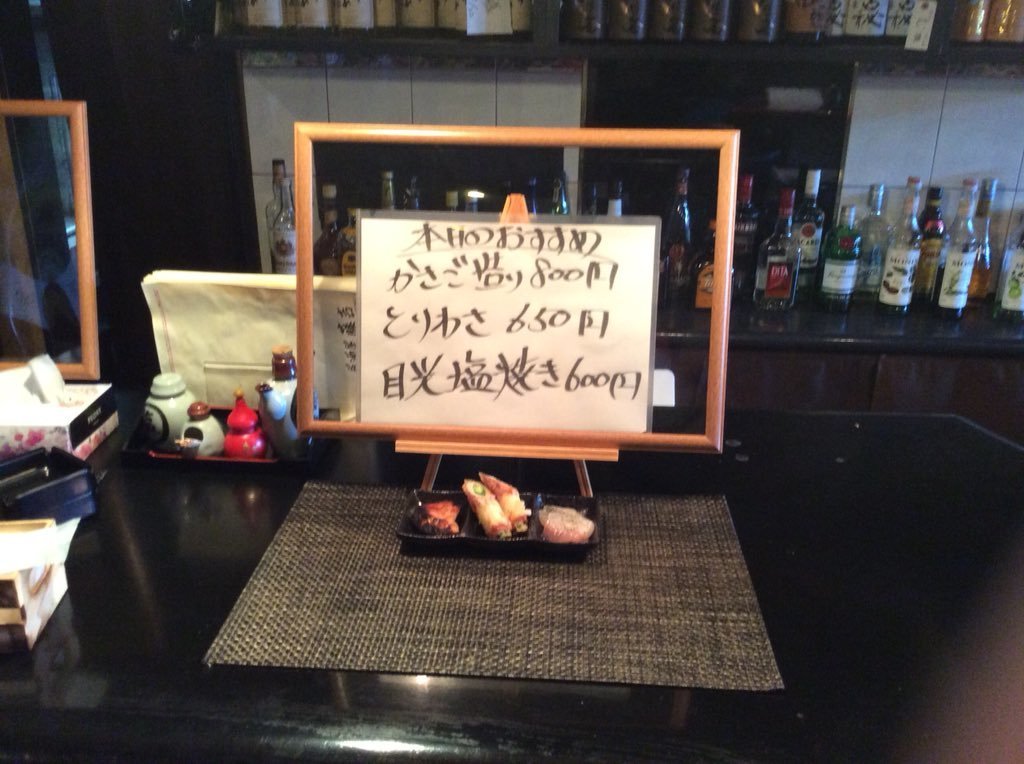 本日のおすすめ
かさご造り 800円
とりわさ 650円
目光塩焼き 600円
DITA